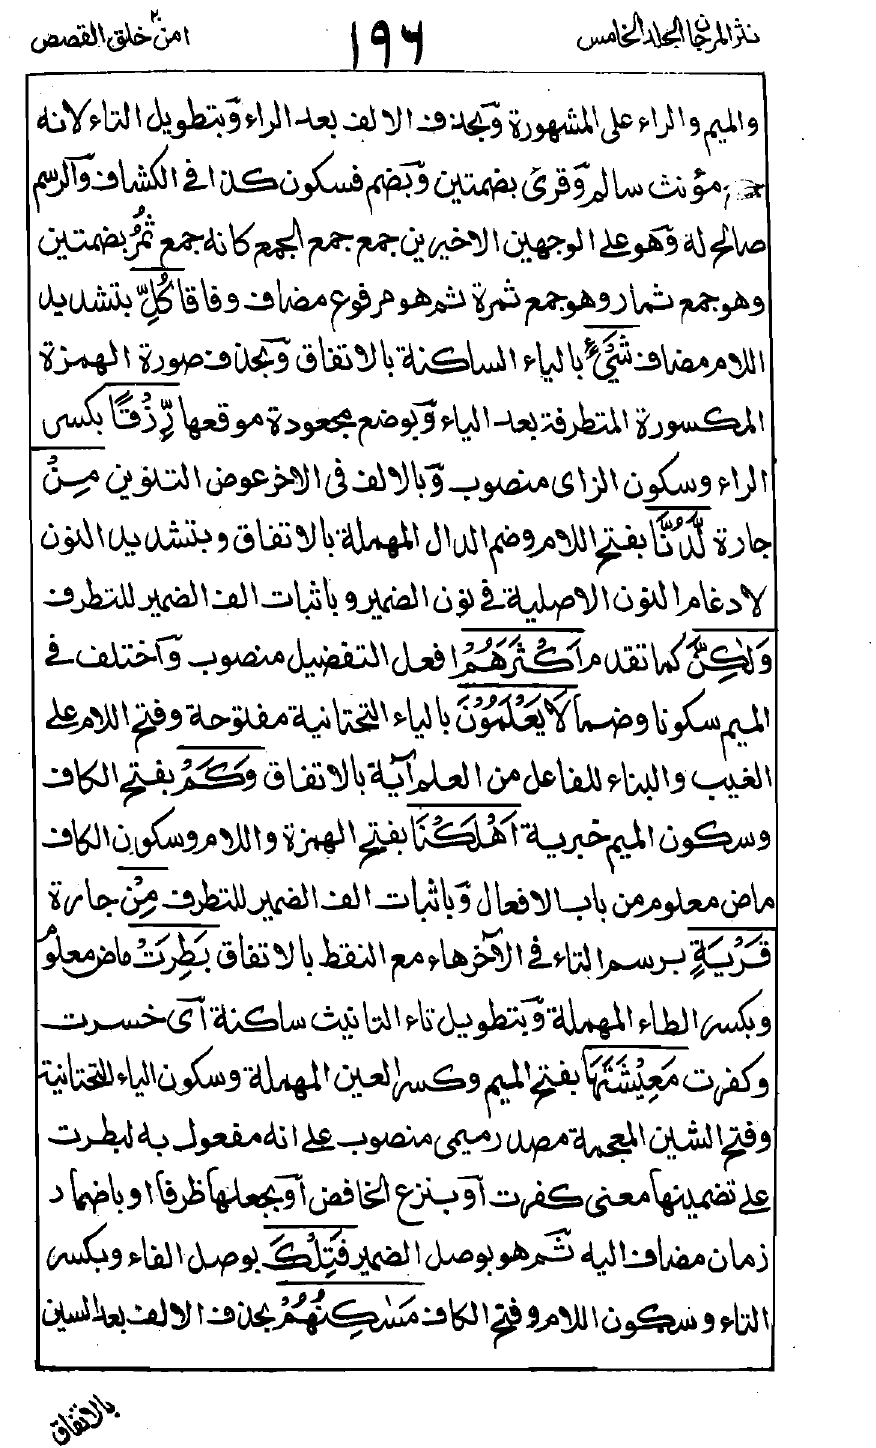 نثر المرجان المجلد الخامس ١٩٦ امن خلق القصص
والميم والراء على المشهورة وَبحذف الالف بعد الراء وَبتطويل التاء لانه
مؤنث سالم وَقرئ بضمتين وَبضم فسكون كذا في الكشاف وَالرسم
صالح له وَهو على الوجهين الاخيرين جمع جمع الجمع كانه جمع ثُمُرٌ بضمتين
وهو جمع ثمار وهو جمع ثمرة ثم هو مرفوع مضاف وفاقا كُلِّ بتشديد
اللام مضاف شَيْءٍ بالياء الساكنة بالاتفاق وَبحذف صورة الهمزة
المكسورة المتطرفة بعد الياء وَبوضع مجعودة موقعها رِّزْقًا بكسر
الراء وسكون الزاى منصوب وَبالالف فى الاخر عوض التنوين مِنْ
جارة لَّدُنَّا بفتح اللام وضم الدال المهملة بالاتفاق وبتشديد النون
لادغام النون الاصلية في نون الضمير وباثبات الف الضمير للتطرف
وَلٰكِنَّ كما تقدم اَكْثَرَهُمْ افعل التفضيل منصوب وَاختلف في
الميم سكونا وضما لَا يَعْلَمُوْنَ بالياء التحتانية مفتوحة وفتح اللام على
الغيب والبناء للفاعل من العلم آية بالاتفاق وَكَمْ بفتح الكاف
وسكون الميم خبرية اَهْلَكْنَا بفتح الهمزة واللام وسكون الكاف
ماض معلوم من باب الافعال وَباثبات الف الضمير للتطرف مِنْ جارة
قَرْيَةٍ برسم التاء في الآخر هاء مع النقط بالاتفاق بَطِرَتْ ماض معلوم
وبكسر الطاء المهملة وَبتطويل تاء التانيث ساكنة آى خسرت
وكفرت مَعِيْشَتَهَا بفتح الميم وكسر العين المهملة وسكون الياء التحتانية
وفتح الشين المعجمة مصدر ميمى منصوب على انه مفعول به لبطرت
على تضمينها معنى كفرت آو بنزع الخافض آو بجعلها ظرفا او باضمار
زمان مضاف اليه ثم هو بوصل الضمير فَتِلْكَ بوصل الفاء وبكسر
التاء وسكون اللام وفتح الكاف مَسٰكِنُهُمْ بحذف الالف بعد السين
بالاتفاق